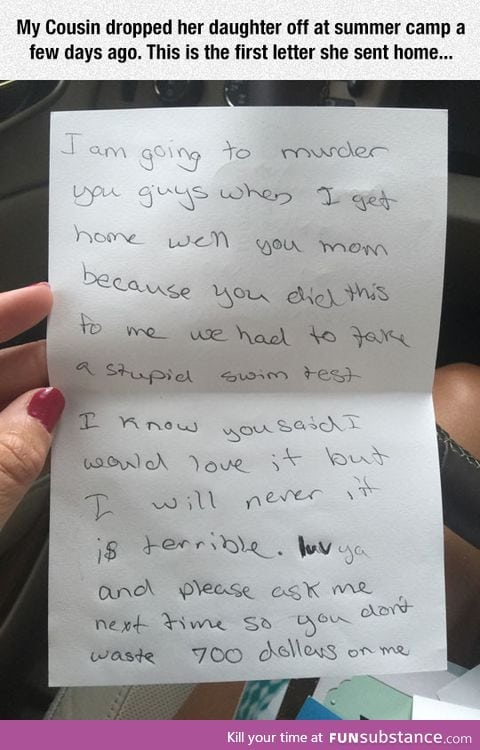 My Cousin dropped her daughter off at summer camp a
few days ago. This is the first letter she sent home...
I am going to murder
you guys when I get
home well you mom
because you did this
to me we had to take
a stupid swim test
I know you said I
would love it but
I will never it
is terrible. luv ya
and please ask me
next time so you don't
waste 700 dollers on me
Kill your time at FUNsubstance.com